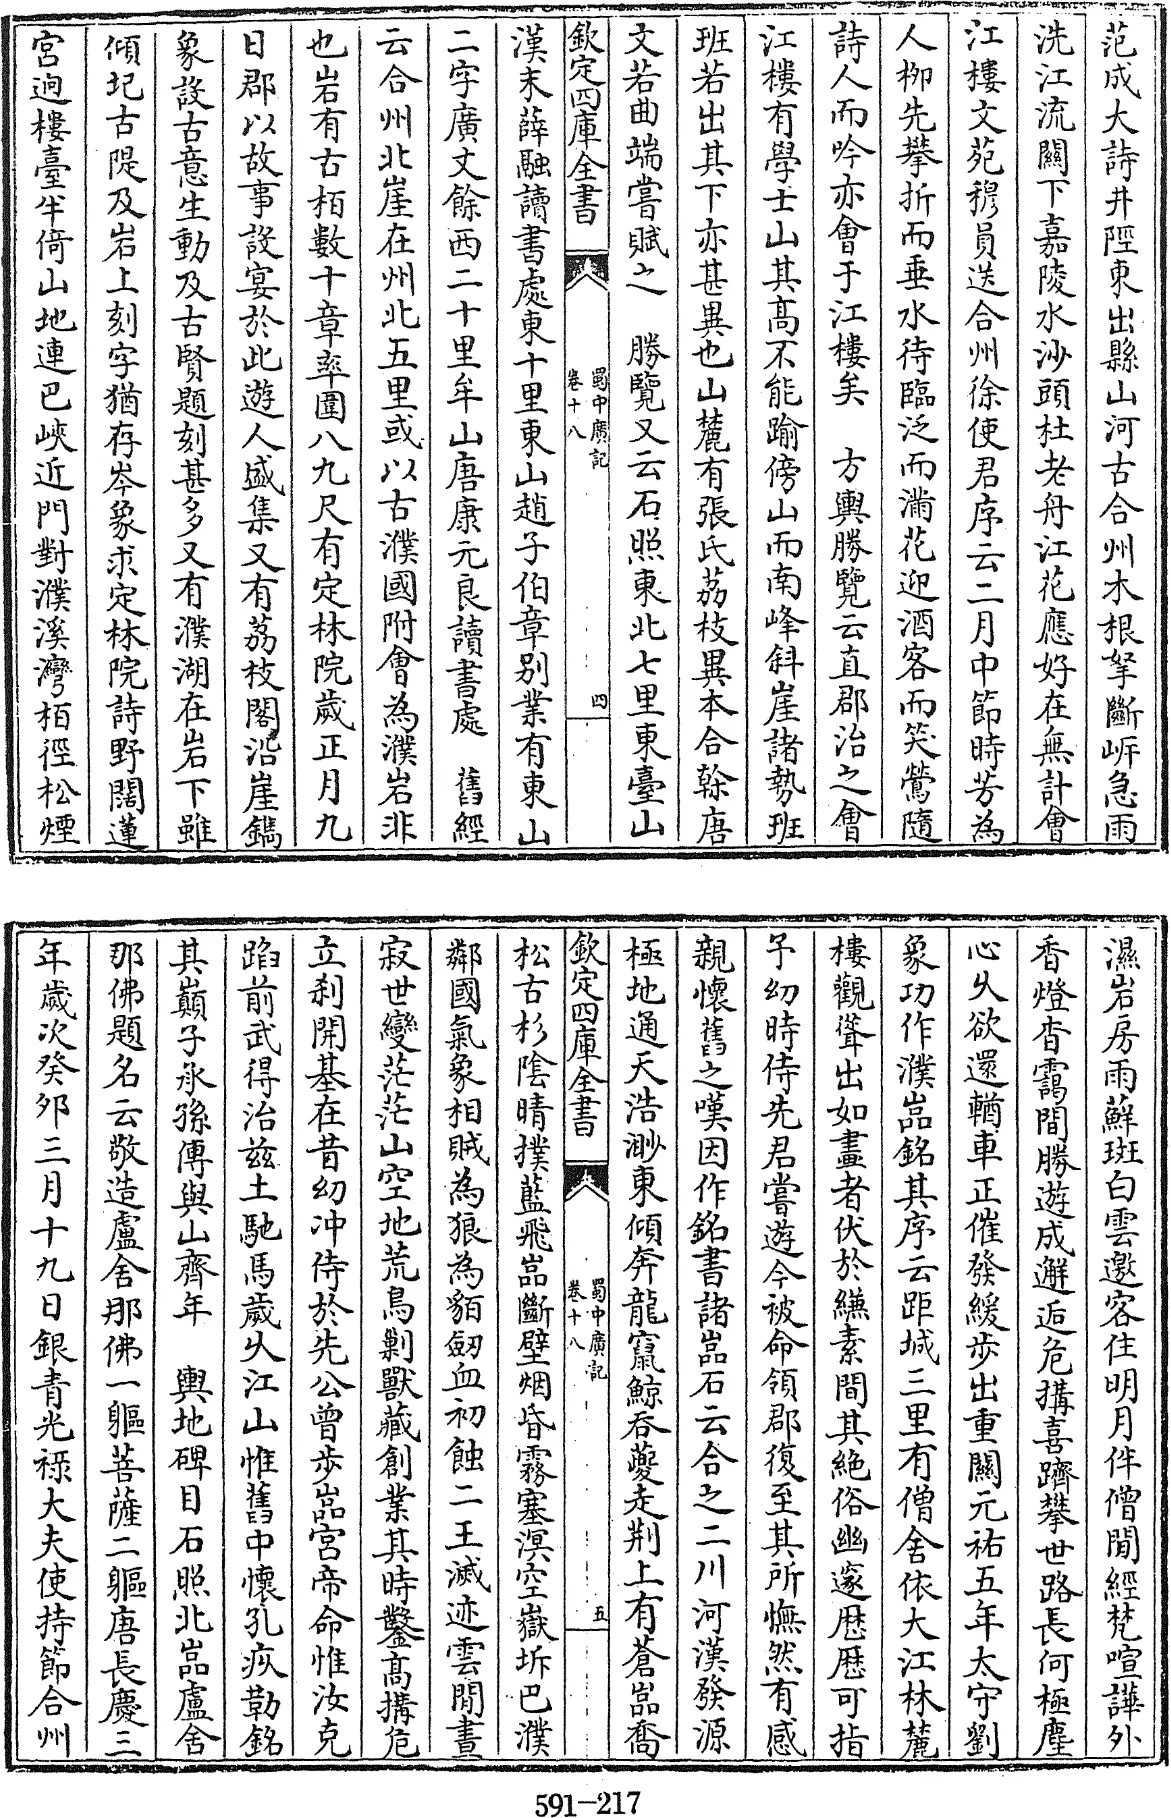 范成大詩井陘東出縣山河古合州木根拏斷岍急雨
洗江流關下嘉陵水沙頭杜老舟江花應好在無計會
江樓文苑穆員送合州徐使君序云二月中節時芳為
人栁先攀折而垂水待臨泛而滿花迎酒客而笑鶯隨
詩人而吟亦會于江樓矣　方輿勝覽云直郡治之會
江樓有學士山其高不能踰傍山而南峰斜崖諸勢班
班若出其下亦甚異也山麓有張氏荔枝異本合榦唐
文若曲端嘗賦之　勝覽又云石照東北七里東臺山
欽定四庫全書
蜀中廣記
卷十八
四
漢末薛融讀書處東十里東山趙子伯章别業有東山
二字廣丈餘西二十里牟山唐康元良讀書處　舊經
云合州北崖在州北五里或以古濮國附會為濮岩非
也岩有古栢數十章率圍八九尺有定林院歲正月九
日郡以故事設宴於此遊人盛集又有荔枝閣沿崖鐫
象設古意生動及古賢題刻甚多又有濮湖在岩下雖
傾圮古隄及岩上刻字猶存岑象求定林院詩野闊蓮
宮迥樓臺半倚山地連巴峽近門對濮溪灣栢徑松煙
濕岩房雨蘚斑白雲邀客住明月伴僧閒經梵喧譁外
香燈杳靄間勝遊成邂逅危搆喜躋攀世路長何極塵
心久欲還輶車正催發緩步出重關元祐五年太守劉
象功作濮嵓銘其序云距城三里有僧舍依大江林麓
樓觀聳出如畫者伏於縑素間其絶俗幽邃歴歴可指
予幼時侍先君嘗遊今被命領郡復至其所憮然有感
親懷舊之嘆因作銘書諸嵓石云合之二川河漢發源
極地通天浩渺東傾奔龍竄鯨吞夔走荆上有蒼嵓喬
欽定四庫全書
蜀中廣記
卷十八
五
松古杉陰晴撲藍飛嵓斷壁烟昏霧塞溟空嶽坼巴濮
鄰國氣象相賊為狼為貊劒血初蝕二王滅迹雲閒晝
寂世變茫茫山空地荒鳥剿獸藏創業其時鑿高搆危
立刹開基在昔幼冲侍於先公曾步嵓宮帝命惟汝克
蹈前武得治兹土馳馬歲久江山惟舊中懷孔疚勒銘
其巔子承孫傳與山齊年　輿地碑目石照北嵓盧舍
那佛題名云敬造盧舍那佛一軀菩薩二軀唐長慶三
年歲次癸夘三月十九日銀青光祿大夫使持節合州
591-217